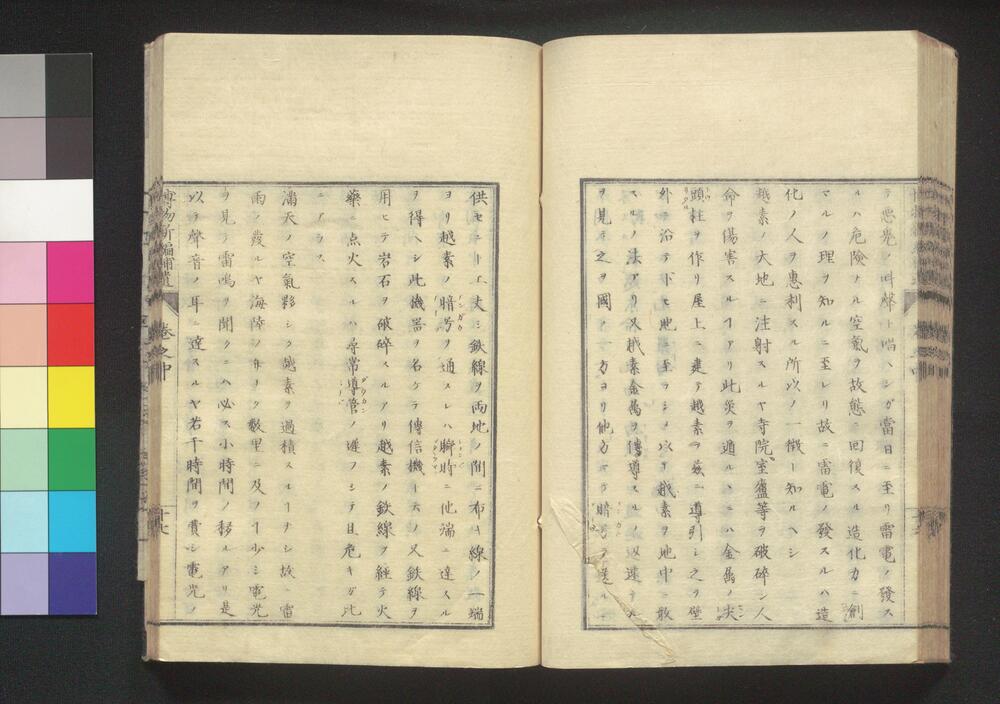 ラ悪鬼ノ叫聲ト唱ヘシガ當日ニ至リ雷電ノ發ス
ルハ危險ナル空氣ヲ故態ニ回復スル造化力ニ創
マルノ理ヲ知ルニ至レリ故ニ雷電ノ發スルハ造
化ノ人ヲ惠利スル所以ノ一徴ト知ルヘシ
越素ノ大地ニ注射スルヤ寺院室廬等ヲ破碎シ人
命ヲ傷害スルヿアリ此災ヲ遁ルヽニハ金属ノ尖
頭柱ヲ作リ屋上ニ建テ越素ヲ茲ニ導引シ之ヲ壁
外ニ沿テ下セ地ニ至ラシメ以テ越素ヲ地中ニ散
スルノ法アリ又越素金属ヲ傳導スルノ迅速ナル
ヲ見テ之ヲ國ノ一方ヨリ他方マテ暗号ヲ送ルニ
供セ 丈ニ鉄線ヲ両地ノ間ニ布キ線ノ一端
ヨリ越素ノ暗号ヲ通スレハ瞬時ニ他端ニ達スル
ヲ得ヘシ此機器ヲ名ケテ傳信機ト云ノ又鉄線ヲ
用ヒテ岩石ヲ破碎スルアリ越素ノ鉄線ヲ經テ火
藥ニ点火スルハ尋常導管ノ遲フシテ且危キガ比
ニアラス
満天ノ空氣夥シク越素ヲ過積スルヿナシ故ニ雷
雨ノ發ルヤ海陸ノ 数里ニ及フヿ少シ電光
ヲ見テ雷鳴ヲ聞クニハ必ス小時間ノ移ルアリ是
以テ聲音ノ耳ニ達スルヤ若干時間ヲ費シ電光ノ
博物新編補遺 卷之中